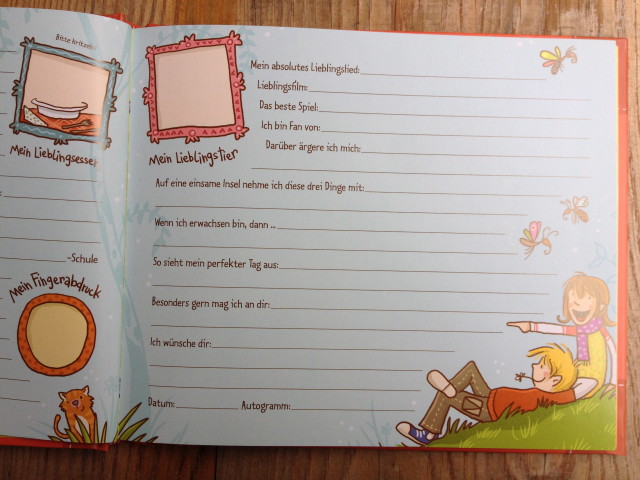 Bitte kritzeln!
Mein Lieblingsessen
-Schule
Mein Fingerabdruck
Mein Lieblingstier
Mein absolutes Lieblingslied:
Lieblingsfilm:
Das beste Spiel:
Ich bin Fan von:
Darüber ärgere ich mich:
Auf eine einsame Insel nehme ich diese drei Dinge mit:
Wenn ich erwachsen bin, dann ..
So sieht mein perfekter Tag aus:
Besonders gern mag ich an dir:
Ich wünsche dir:
Datum: Autogramm: